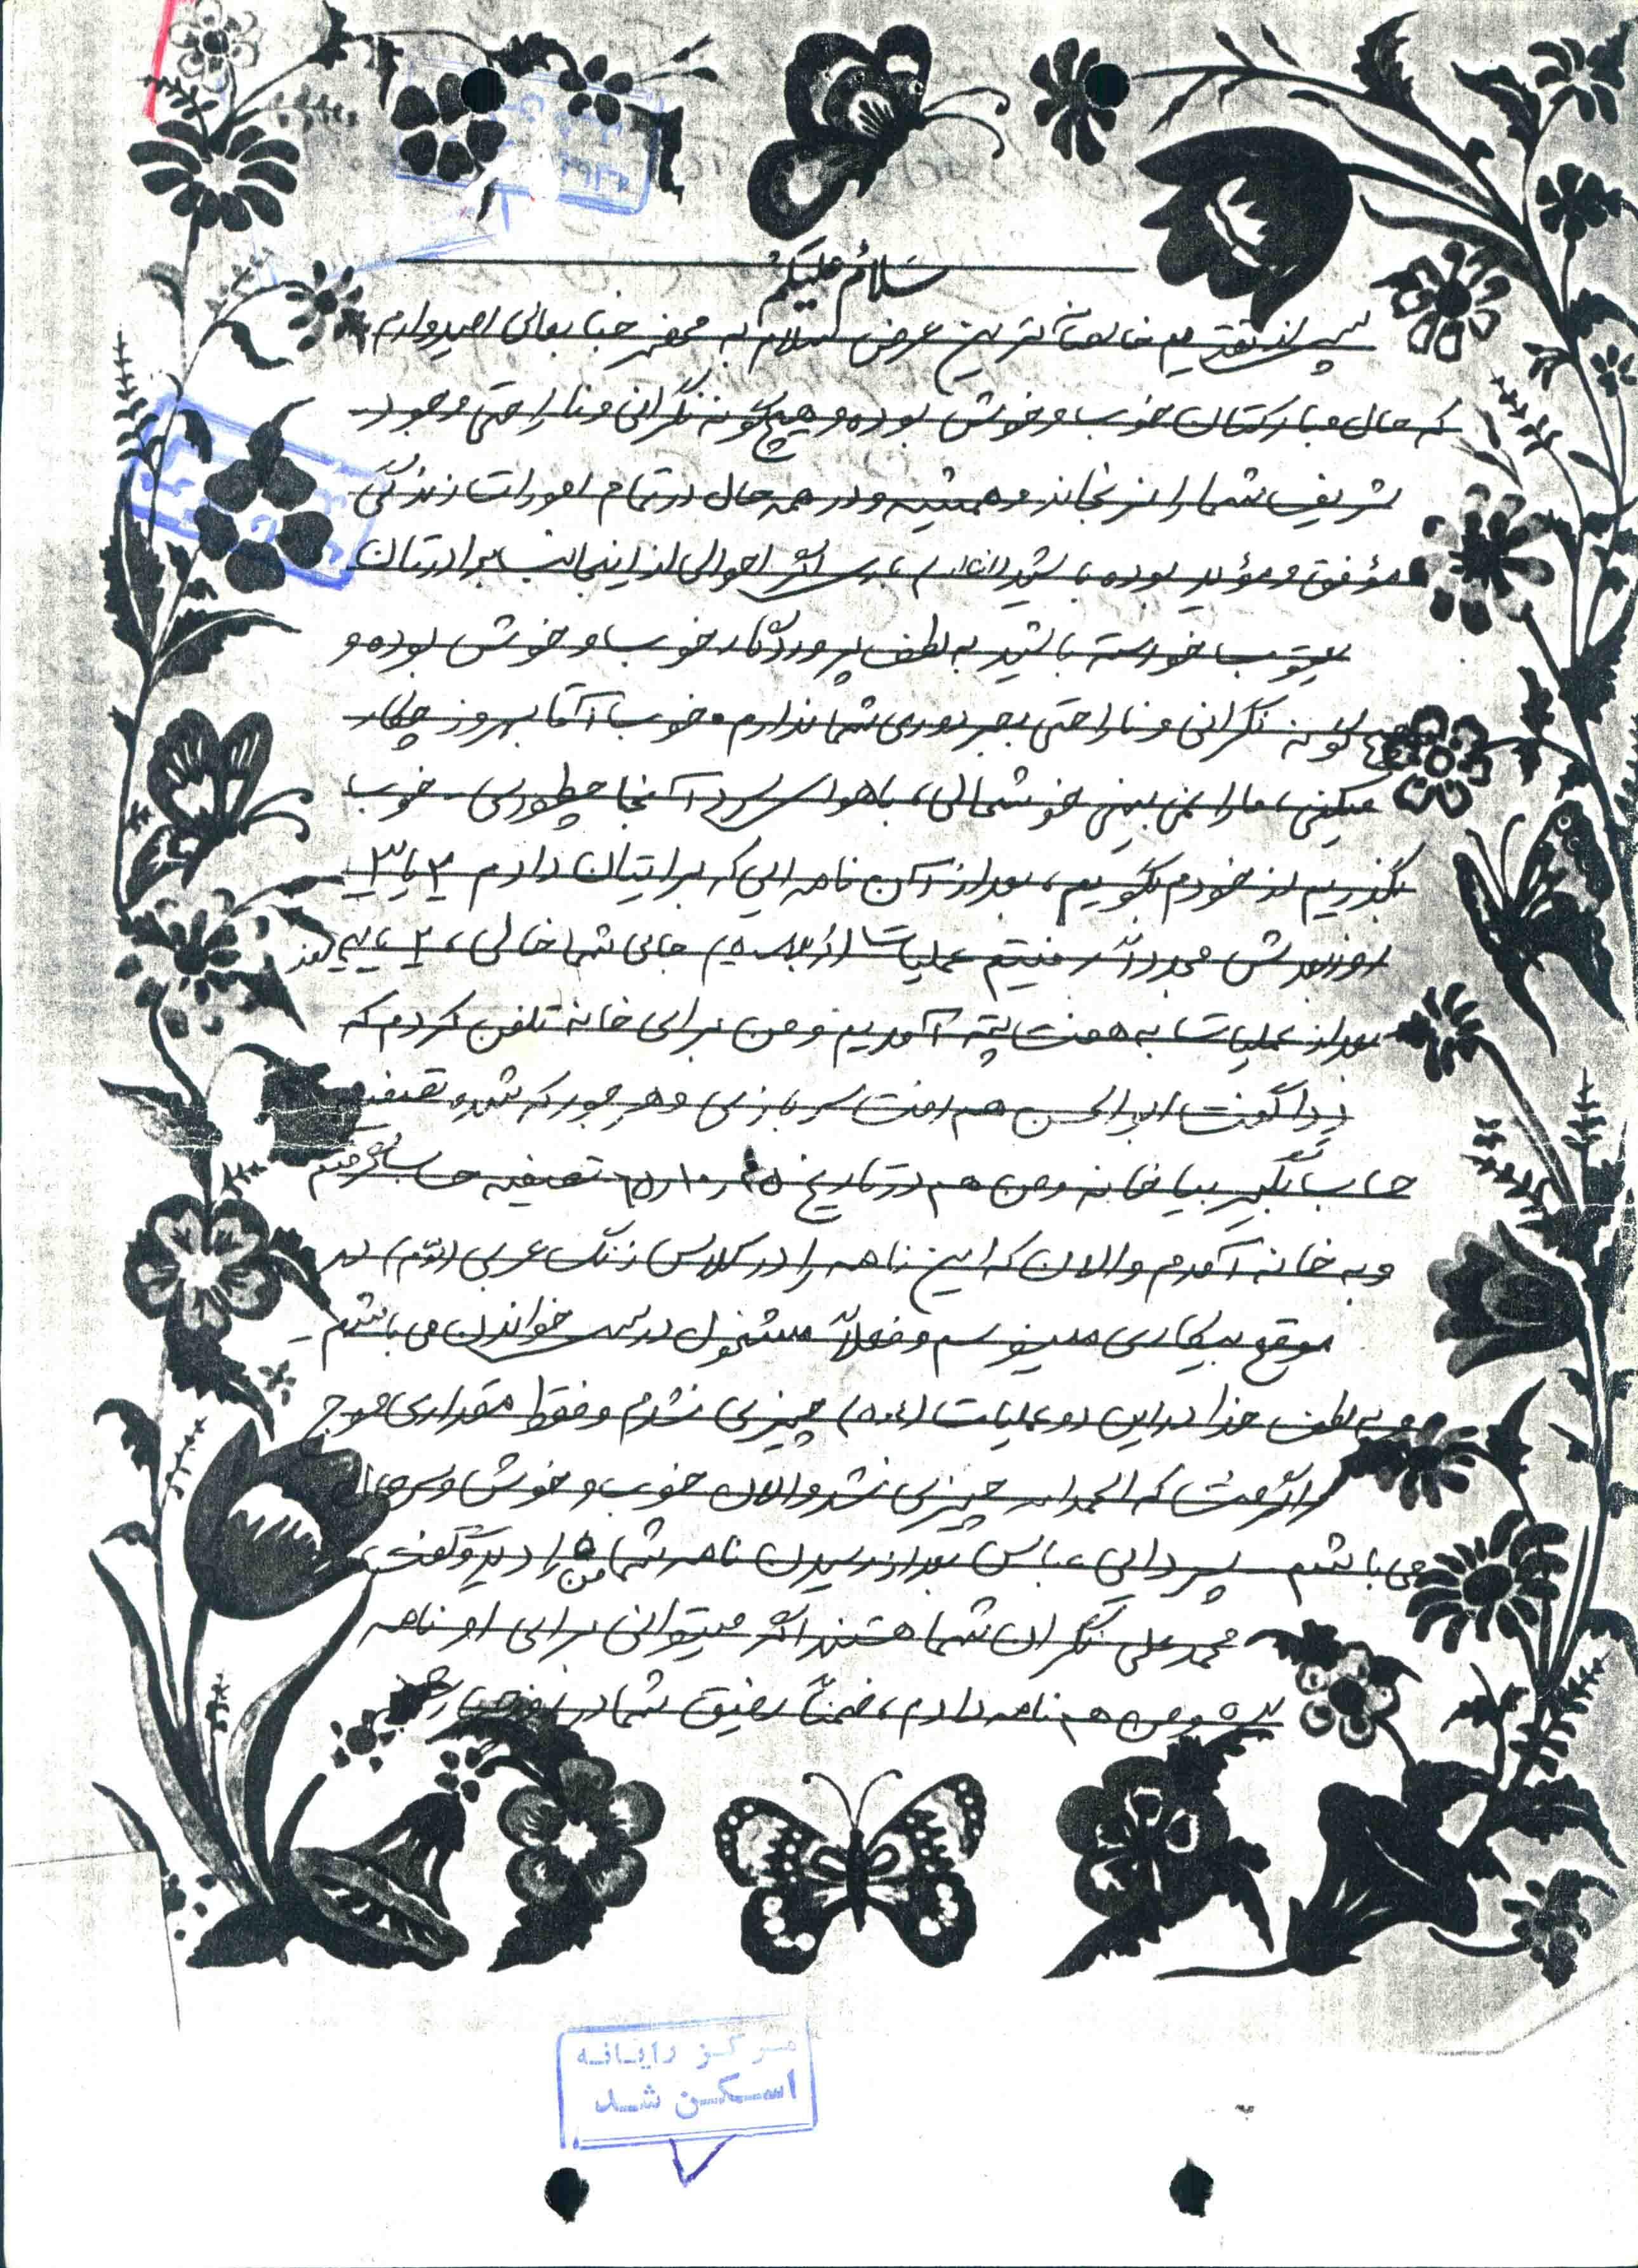 سلامٌ علیکم
پس از تقدیم خالصانه ترین عرض سلام به محضر جنابعالی امیدوارم
که حال مبارکتان خوب و خوش بوده و هیچ گونه نگرانی و ناراحتی وجود
شریف شما را نرنجاند و همیشه و در همه حال در تمام امورات زندگی
مؤفق و مؤید بوده باشید اگر احوالی از اینجانب برادرتان
یعقوب خواسته باشید به لطف پروردگار خوب و خوش بوده و
هیچ گونه نگرانی و ناراحتی بجز دوری شما ندارم و خوب آقا بهروز چکار
میکنی، ما را نمی بینی خوشحالی، با هوای سرد آنجا چطوری. خوب
بگذریم از خودم بگویم، بعد از آن نامه ایی که برایتان دادم ۲ یا ۳
روز بعدش مجدداً رفتیم عملیات جای شما خالی، ۲ یا روز
بعد از عملیات به هفت تپه آمدیم و من برای خانه تلفن کردم که
گفت ابوالحسن هم رفت سربازی و هر جور که شده تصفیه
حساب بگیر بیا خانه و من هم در تاریخ تصفیه حساب گرفتم
و به خانه آمدم و الان که این نامه را در کلاس زنگ عربی در
موقع بیکاری مینویسم و فعلاً مشغول درس خواندن می باشم.
و به لطف خدا در این دو عملیات چیزی نشدم و فقط مقداری موج
گرفت که الحمدالله چیزی نشد و الان خوب و خوش و سرحال
می باشم. پسر دایی عباس بعد از رسیدن نامه شما من را دید و گفت،
محمد علی نگران شما هستند اگر میتوانی برای او نامه
بده و من هم نامه دادم، ضمناً رفیق شما در
مرکز رایانه
اسکن شد